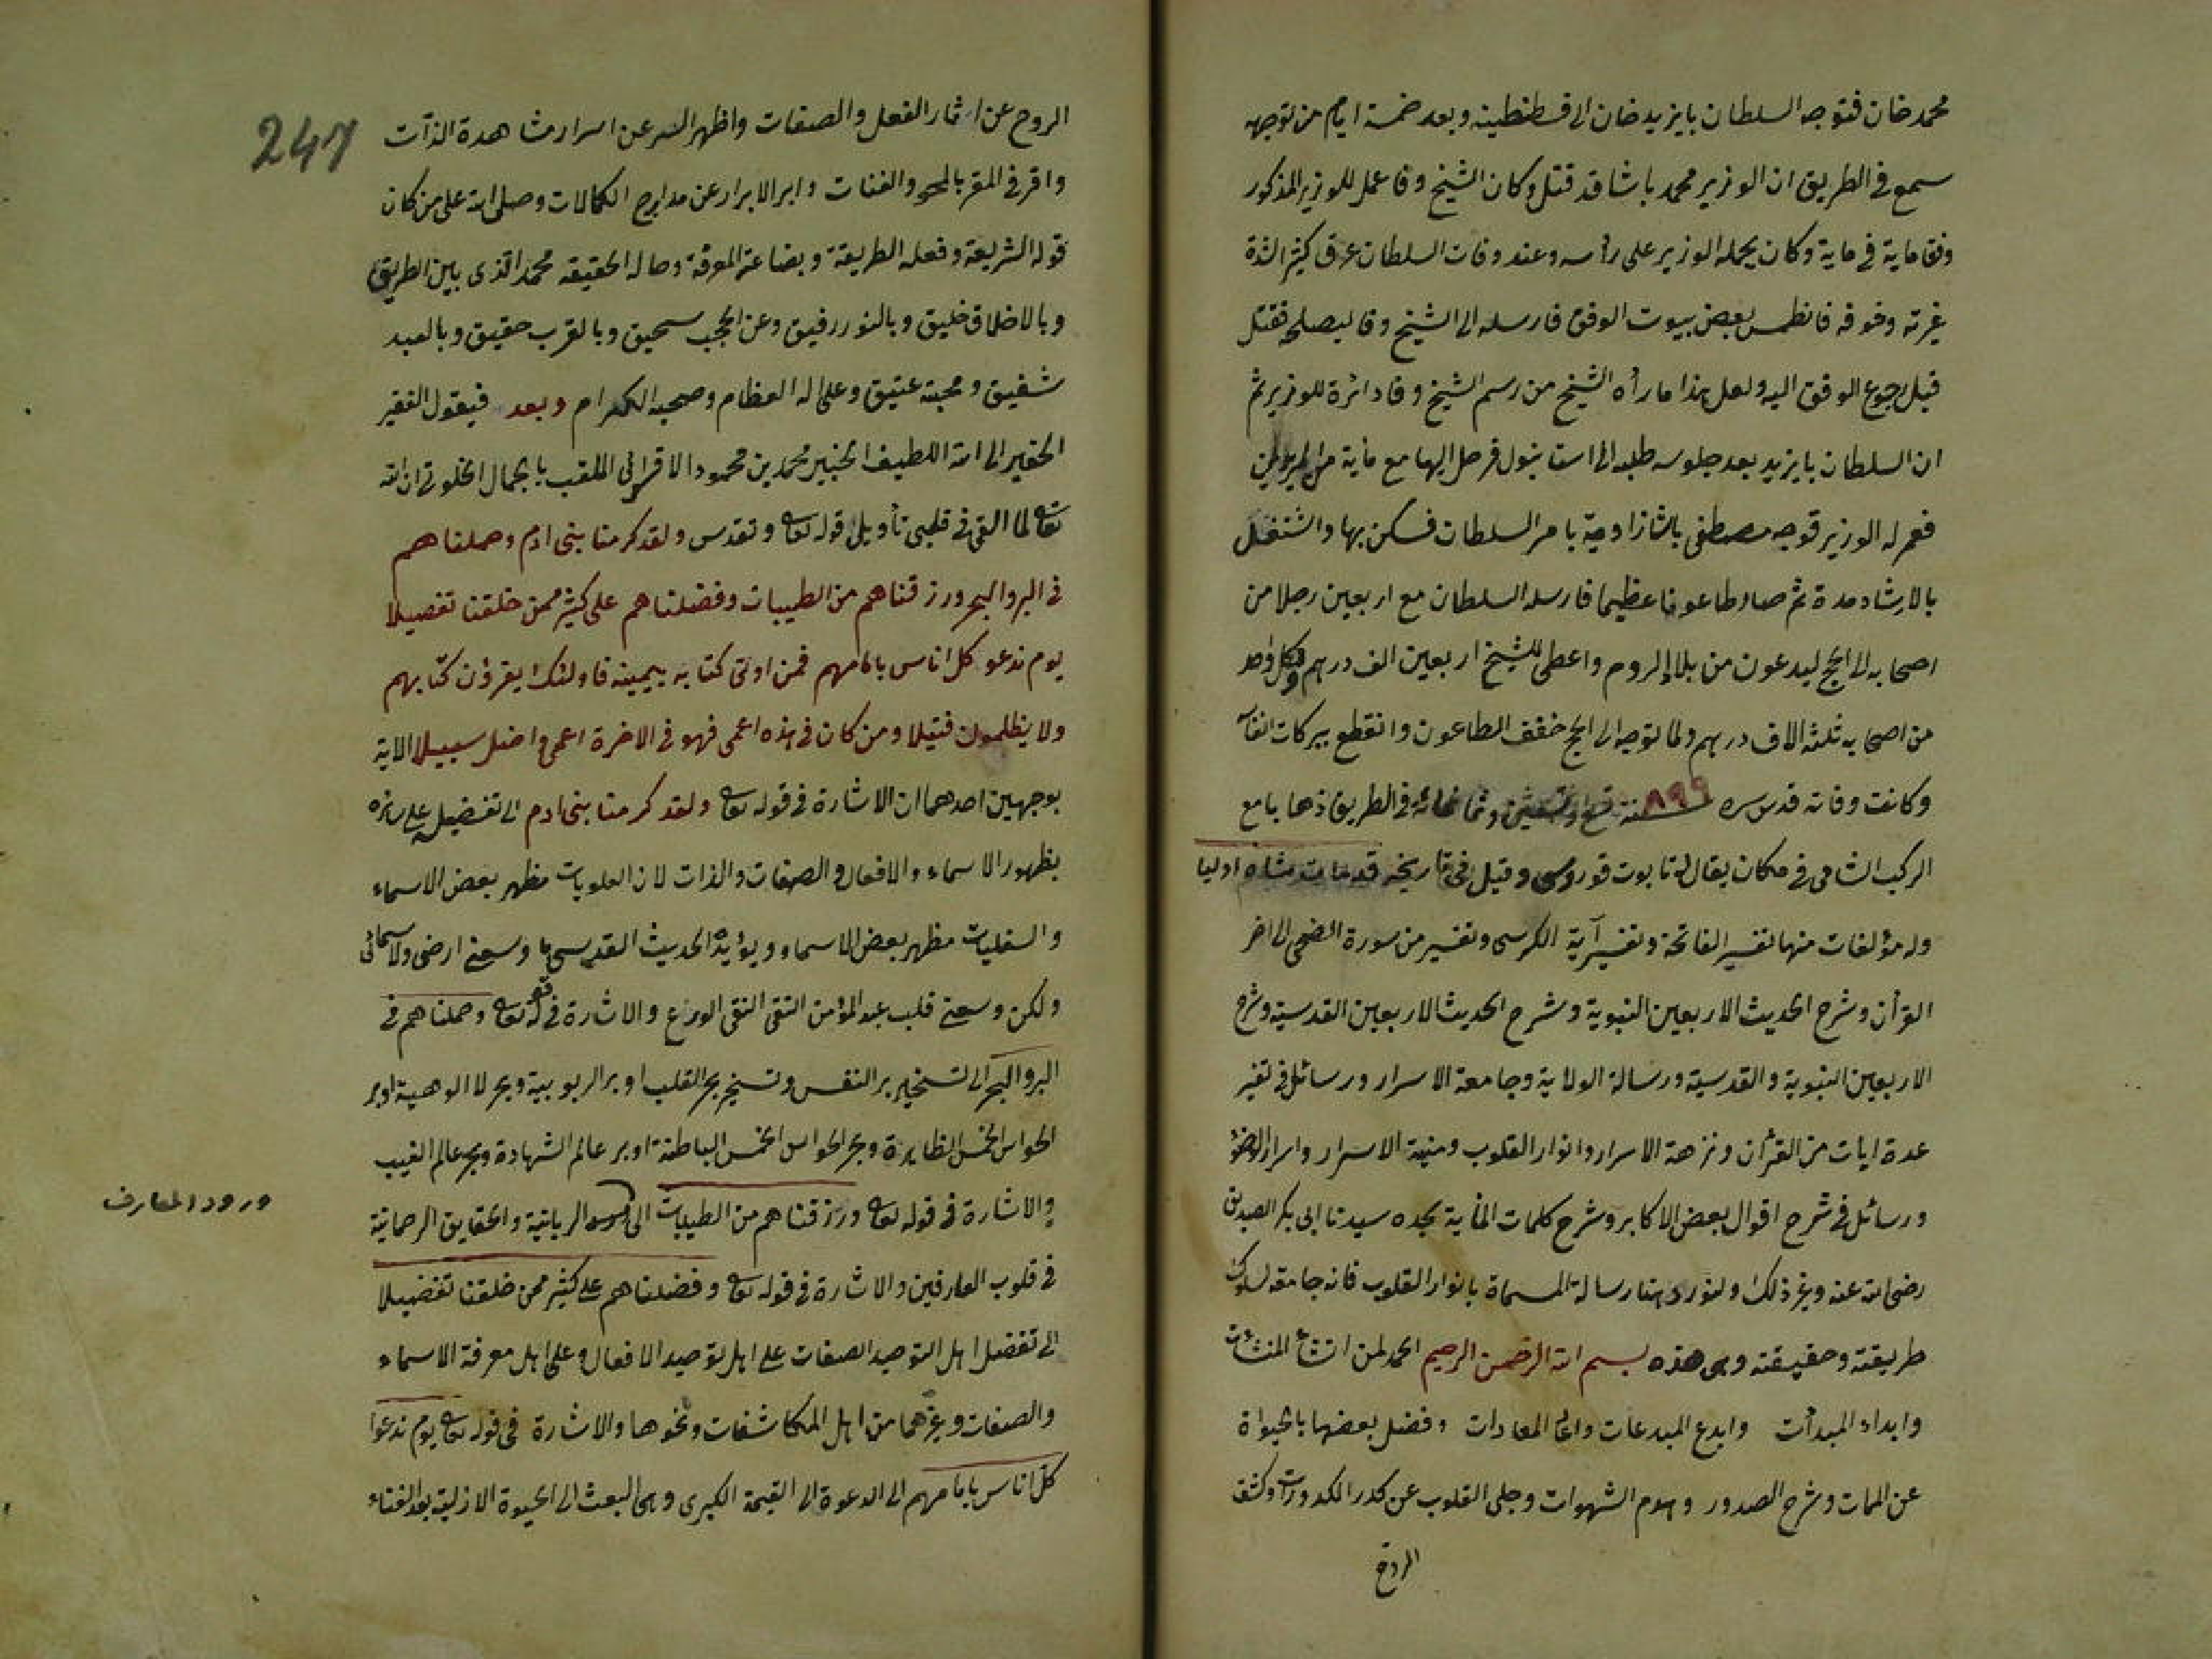 محمد خان فتوجه السلطان بايزيد خان الى قسطنطينه وبعد خمسة ايام من توجهه
سمع فى الطريق ان الوزير محمد باشا قد قتل وكان الشيخ وفا عمل للوزير المذكور
وفقا ماية فى ماية وكان يحمله الوزير على رأسه وعند وفات السلطان عرق كثير الشدة
غيرته وخوفه فانطمس بعض بيوت الوفق فارسله الى الشيخ وفا ليصلحه فقتل
قبل رجوع الوفق اليه ولعل هذا ما رأه الشيخ من رسم الشيخ وفا دائرة للوزير ثم
ان السلطان بايزيد بعد جلوسه طلبه الى استانبول فرحل اليها مع ماية من المريدين
فعمر له الوزير قوجه مصطفى باشا زاوية بامر السلطان فسكن بها واشتغل
بالارشاد مدة ثم صار طاعونا عظيما فارسله السلطان مع اربعين رجلا من
اصحابه الى الحج ليدعون من بلاء الروم واعطى للشيخ اربعين الف درهم ولكل واحد
من اصحابه ثلثة الاف درهم ولما توجه الى الحج خفف الطاعون وانقطع ببركات انفاسه
وكانت وفاته قدس سره ٨٩٩ سنة تسع وتسعين وثمانمائة فى الطريق ذهابا مع
الركب الشامى فى مكان يقال له تابوت قوروسى وقيل فى تاريخه قد مات شاه اوليا
وله مؤلفات منها تفسير الفاتحة وتفسير آية الكرسى وتفسير من سورة الضحى الى اخر
القرأن وشرح الحديث الاربعين النبوية وشرح الحديث الاربعين القدسية وشرح
الاربعين النبوية والقدسية ورسالة الولاية وجامعة الاسرار ورسائل فى تفسير
عدة ايات من القرأن ونزهة الاسرار وانوار القلوب ومنية الاسرار واسرار الوضوء
ورسائل فى شرح اقوال بعض الاكابر وشرح كلمات الماية لجده سيدنا ابى بكر الصديق
رضى الله عنه وغير ذلك ولنورد هنا رسالة المسماة بانوار القلوب فانه جامعة لسلوك
طريقته وحقيقته وهى هذه بسم الله الرحمن الرحيم الحمد لمن انشأ المنشئات
وابداء المبدأت وابدع المبدعات المعادات وفضل بعضها بالحيواة
عن الممات وشرح الصدور وهدم الشهوات وجلى القلوب عن كدر الكدورات وكشف
الروح
247
الروح عن اثمار الفعل والصفات واظهر السر عن اسرار مشاهدة الذات
واقر فى المقر بالمحو والفنات وابر الابرار عن مدارج الكمالات وصلى الله على من كان
قوله الشريعة وفعله الطريقة وبضاعته المعرفة وحاله الحقيقه محمد الذى بين الطريق
وبالاخلاق خليق وبالنور رفيق وعن الحجب سحيق وبالقرب حقيق وبالعبد
شفيق ومحبته عتيق وعلى اله العظام وصحبه الكرام وبعد فيقول الفقير
الحقير الى الله اللطيف الخبير محمد بن محمود الاقسرائى الملقب بالجمال الخلوتى ان الله
تعالى لما القى فى قلبى تأويل قوله تعالى وتقدس ولقد كرمنا بنى ادم وحملناهم
فى البر والبحر ورزقناهم من الطيبات وفضلناهم على كثير ممن خلقنا تفضيلا
يوم ندعو كل اناس بامامهم فمن اوتى كتابه بيمينه فاولئك يقرؤن كتابهم
ولا يظلمون فتيلا ومن كان فى هذه اعمى فهو فى الاخرة اعمى واضل سبيلا الاية
بوجهين احدهما ان الاشارة فى قوله تعالى ولقد كرمنا بنى ادم الى تفضيله على سائره
بظهور الاسماء والافعال والصفات والذات لان العلويات مظهر بعض الاسماء
والسفليات مظهر بعض الاسماء ويؤيده الحديث القدسى ما وسعنى ارضى ولا سمائى
ولكن وسعنى قلب عبد المؤمن التقى النقى الورع والاشارة فى قوله تعالى وحملناهم فى
البر والبحر الى تسخير بر النفس وتسخير بحر القلب او بر الربوبية وبحر الالوهية او بر
الحواس الخمس الظاهرة وبحر الحواس الخمس الباطنة او بر عالم الشهادة وبحر عالم الغيب
والاشارة فى قوله تعالى ورزقناهم من الطيبات الى الربانية والحقايق الرحمانية
ورود المعارف
فى قلوب العارفين والاشارة فى قوله تعالى وفضلناهم على كثير ممن خلقنا تفضيلا
الى تفضيل اهل التوحيد الصفات على اهل توحيد الافعال وعلى اهل معرفة الاسماء
والصفات وغيرهما من اهل المكاشفات ونحوها والاشارة فى قوله تعالى يوم ندعوا
كل اناس بامامهم الى الدعوة الى القيمة الكبرى وهى البعث الى الحيوة الازلية بعد الفناء